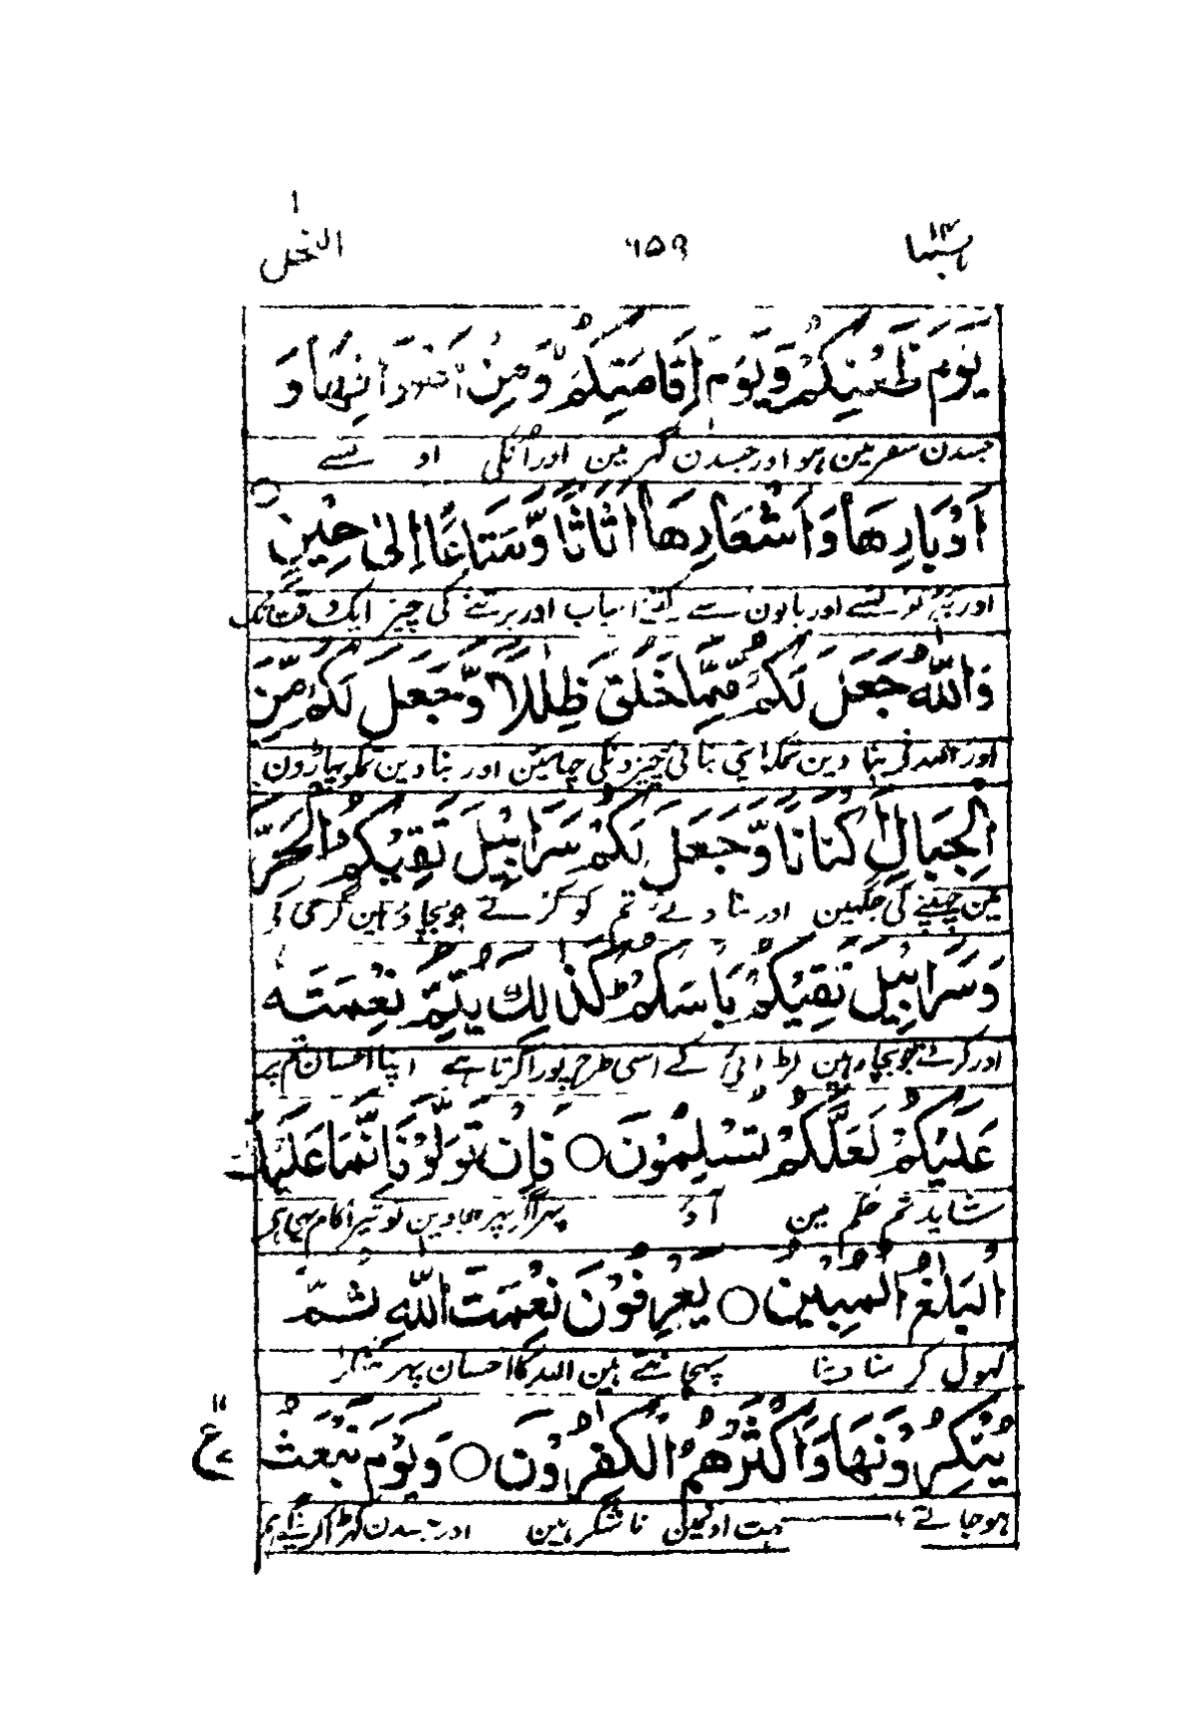 ۱
ربما ۱۴ ۶۵۹ النحل
يَوْمَ ظَعْنِكُمْ وَيَوْمَ اِقَامَتِكُمْ وَمِنْ اَصْوَافِهَا وَ
جسدن سفر مین ہو اور جسدن گھر مین اور اُنکی اون سے
اَوْبَارِهَا وَاَشْعَارِهَا اَثَاثًا وَّمَتَاعًا اِلٰى حِيْنٍ ○
اور سے اور بالون سے کتنے اسباب اور برتنے کی چیز ایک وقت تک
وَاللّٰهُ جَعَلَ لَكُمْ مِّمَّا خَلَقَ ظِلٰلًا وَّجَعَلَ لَكُمْ مِّنَ
اور اللہ نے بنا دین تمکو اپنی بنائی چیزونکی چھائین اور بنا دین تمکو پہاڑون
الْجِبَالِ اَكْنَانًا وَّجَعَلَ لَكُمْ سَرَابِيْلَ تَقِيْكُمُ الْحَرَّ
مین چھپنے کی جگہین اور بنا دے تم کو کرتے جو بچاوُ ہین گرمی کے
وَسَرَابِيْلَ تَقِيْكُمْ بَاْسَكُمْ ط كَذٰلِكَ يُتِمُّ نِعْمَتَهٗ
اور کرتے جو بچاو ہین لڑائی کے اسی طرح پورا کرتا ہے اپنا احسان تم پر
عَلَيْكُمْ لَعَلَّكُمْ تُسْلِمُوْنَ ○ فَاِنْ تَوَلَّوْا فَاِنَّمَا عَلَيْكَ
شاید تم حکم مین آؤ پھر اگر پھر جاوین تو تیرا کام یہی ہے
الْبَلٰغُ الْمُبِيْنُ ○ يَعْرِفُوْنَ نِعْمَتَ اللّٰهِ ثُمَّ
کھول کر سنا دینا پہچانتے ہین اللہ کا احسان پھر منکر
يُنْكِرُوْنَهَا وَاَكْثَرُهُمُ الْكٰفِرُوْنَ ○ وَيَوْمَ نَبْعَثُ
۱۱ ع
ہو جاتے بہت اونمین ناشکر ہین اور جسدن کھڑا کرینگے ہم